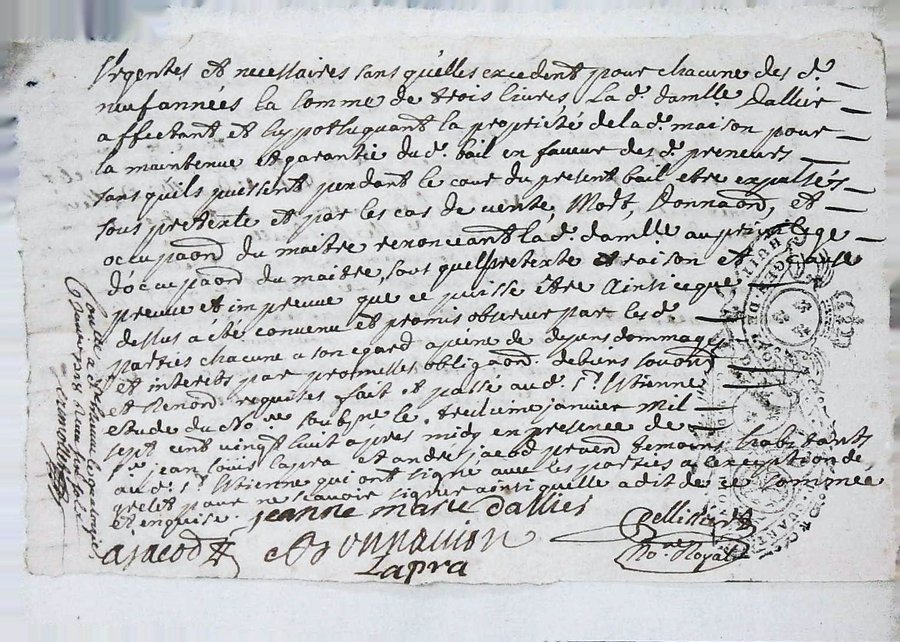 Urgentes et necessaires sans quelles excedent pour chacune des d.
neuf années la somme de trois livres, La d. damlle Dallier
affectant et hypottuquant la proprieté de la d. maison pour
la maintenue et garantie du d. bail en faveur des d. preneurs
sans quils puissent pendant le cour du present bail etre expulsés
sous pretexte et par les cas de vente, Mort, Donnaond, et
occupaond du maitre renonceant lad. damlle au privilege
d'occupaond du maitre, sous quelpretexte et raison et cause
preveue et impreveue que ce puisse etre ainsi ceque
dessus a été convenu et promis observer par les d.
parties chacune a son egard a peine de depens dommages
et interets par promesses obligaond. de biens
et Renond. requises fait et passé au d. St. Estienne
etude du No.re soubne le treisieme janvier mil
sept cent vingt huit apres midy en presence de
sr. jean Louis Lapra et andre jacod temoins habitants
au d. St. Estienne qui ont signé avec les parties a exception de
grelet pour ne scavoir signer ainsi quelle a dit de ce sommee
et enquise. jeanne marie dallies
Pellissier
ajacod Bonnavion
No.re Royal
Lapra